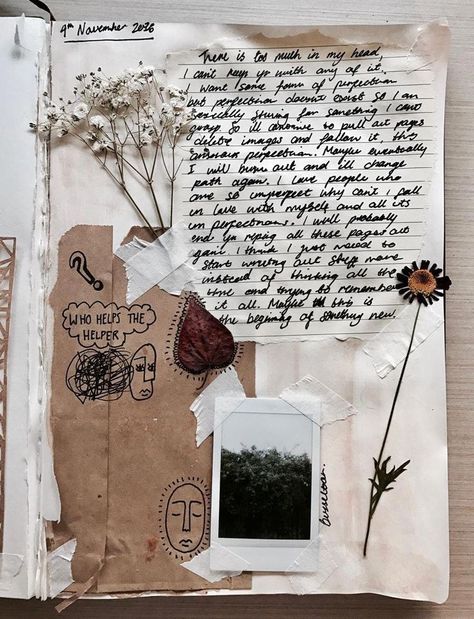 4th November 2026
There is too much in my head,
I can't keep up with any of it.
I want some form of perfection
but perfection doesn't exist so I am
striving for something I can't
grasp. So ill continue to pull out pages
delete images and follow this
perfection. Maybe eventually
I will burn out and ill change
path again. I love people who
are so imperfect why can't I fall
in love with myself and all its
imperfections. I will probably
end up ripping all these pages out
again I think I just need to
start writing out stuff more
instead of thinking all the
time and trying to remember
it all. Maybe this is
the beginning of something new.
?
WHO HELPS THE
HELPER